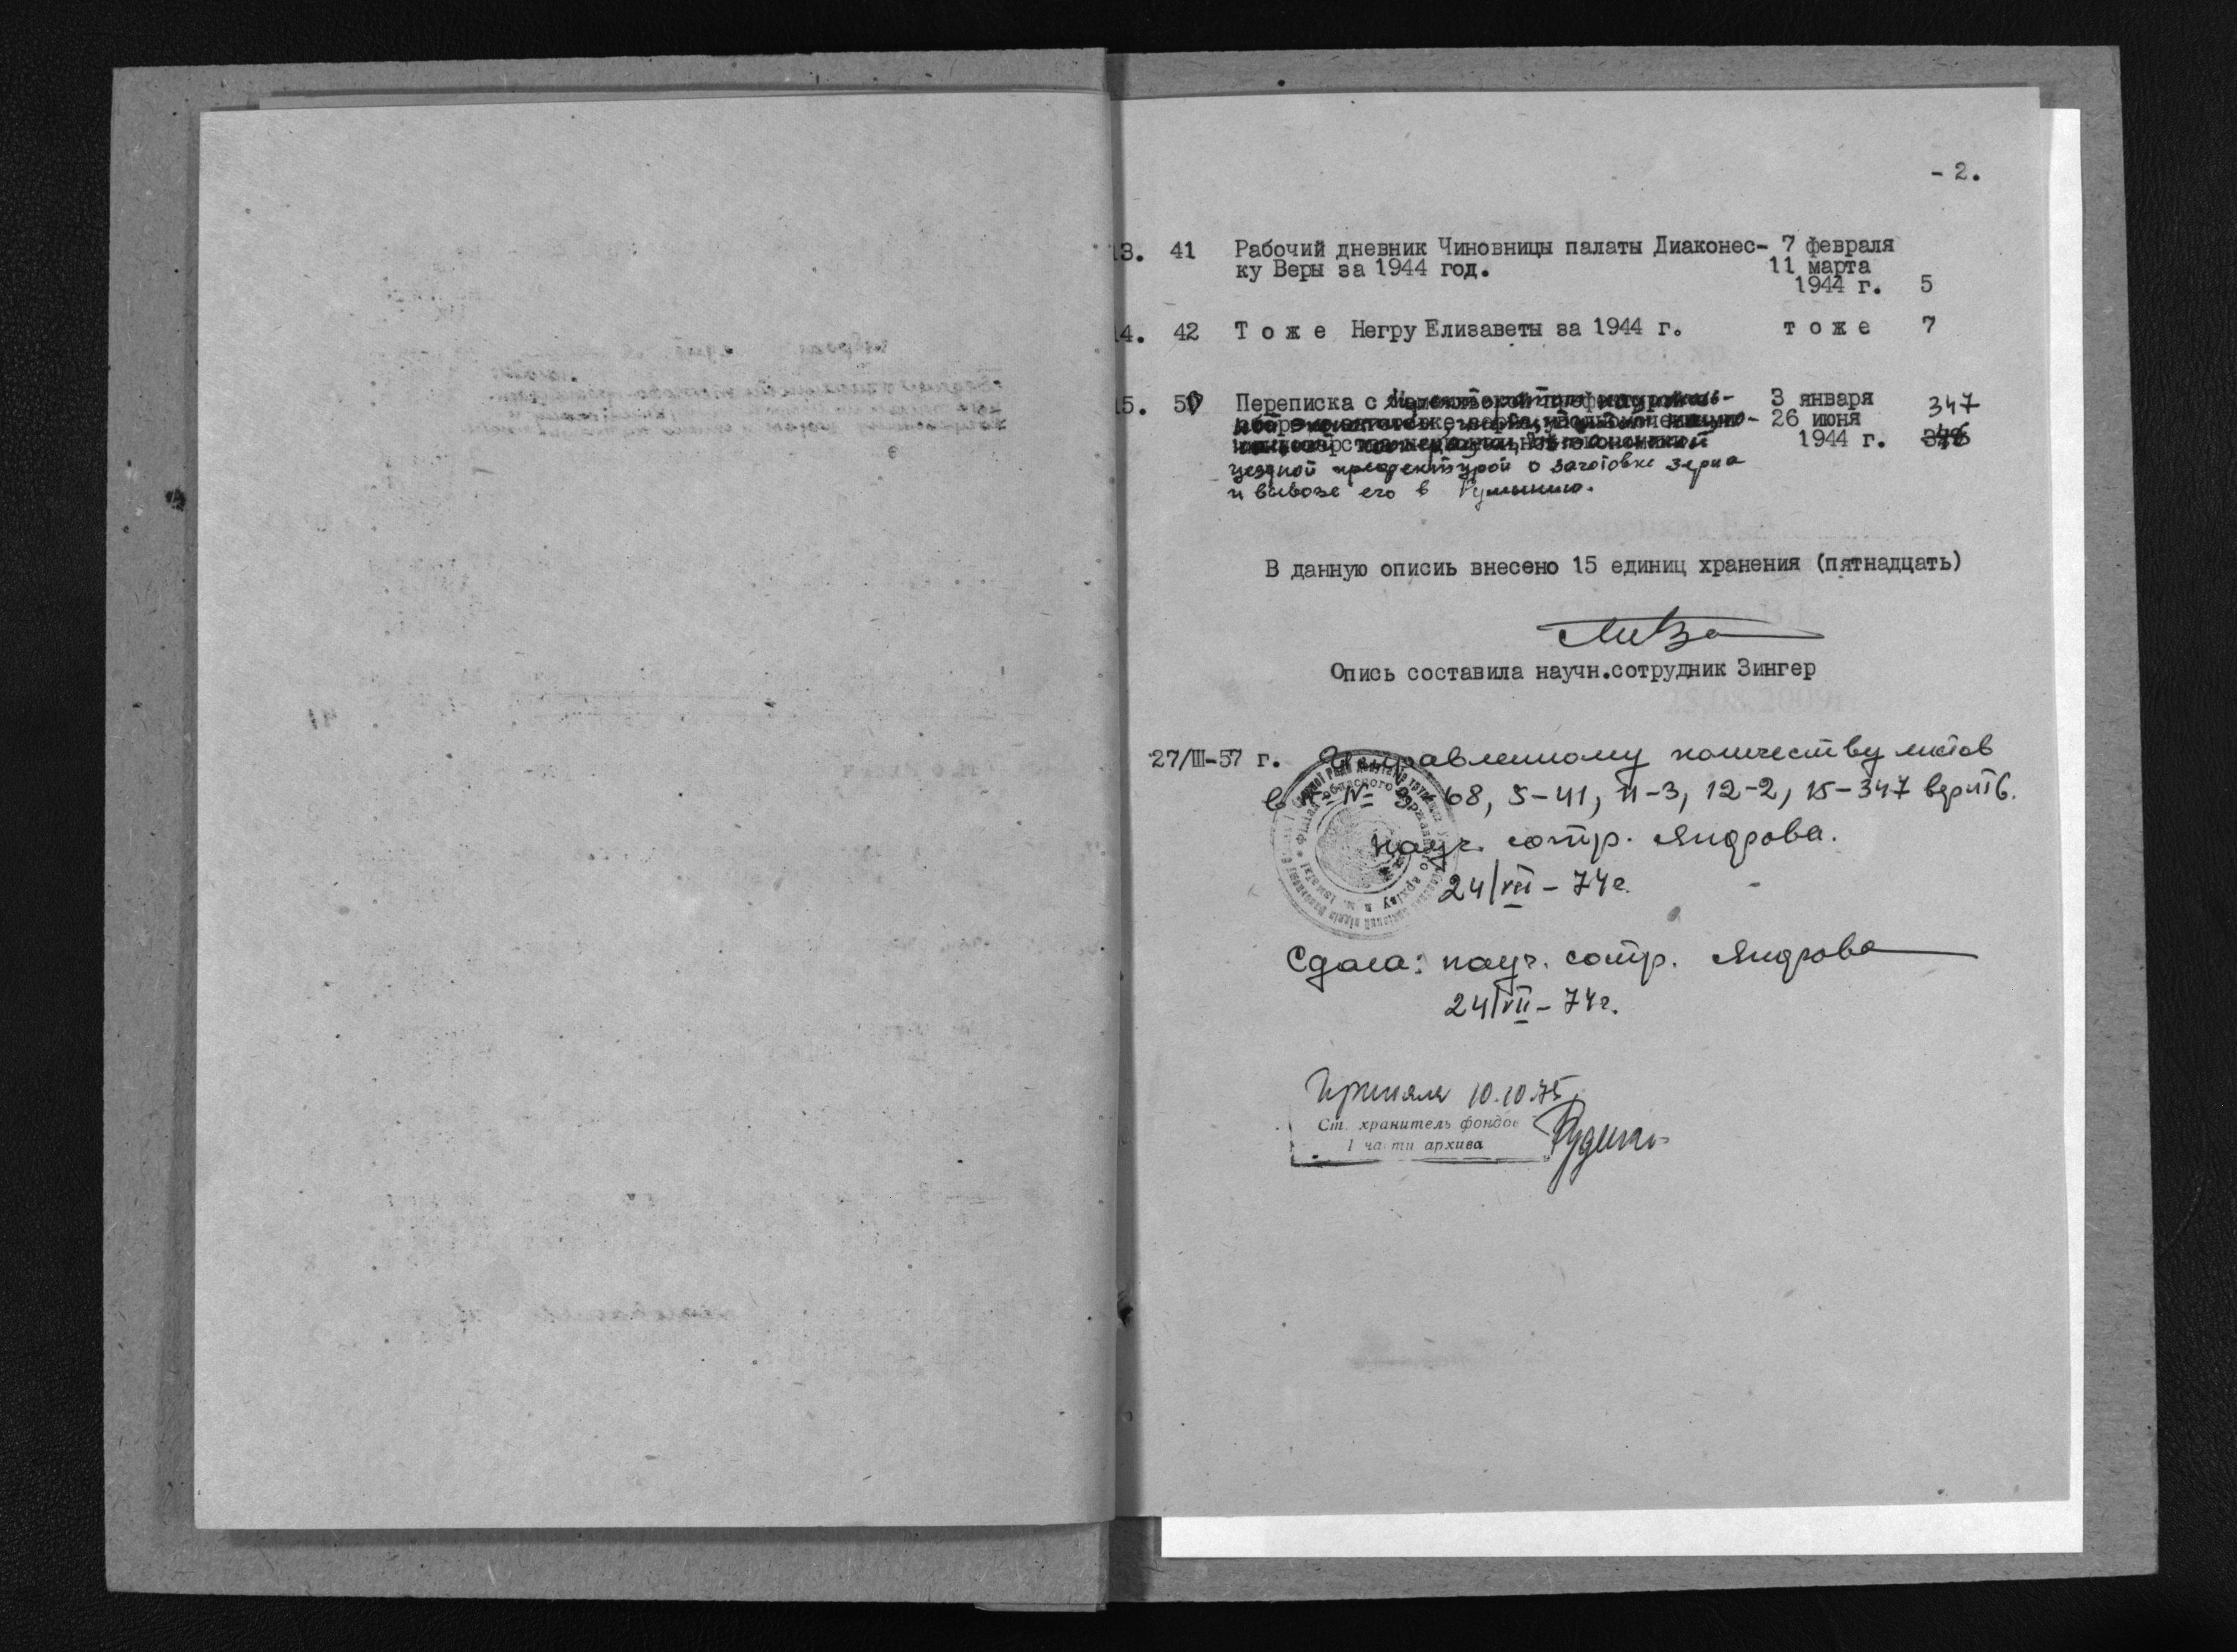 - 2.
13. 41 Рабочий дневник Чиновницы палаты Диаконес- 7 февраля
ку Веры за 1944 год. 11 марта
1944 г. 5
14. 42 Т о ж е Негру Елизаветы за 1944 г. т о ж е 7
15. 50 Переписка с 3 января 347
26 июня
1944 г.
уездной префектурой о заготовке зерна
и вывозе его в Румынию.
В данную описиь внесено 15 единиц хранения (пятнадцать)
Опись составила научн.сотрудник Зингер
27/III-57 г. Исправленному количеству листов
в 68, 5-41, 11-3, 12-2, 15-347 верить.
науч. сотр. Яндрова.
24/VII - 74г.
Сдала: науч. сотр. Яндрова
24/VII - 74г.
Приняла 10.10.75
Ст. хранитель фондов
1 части архива